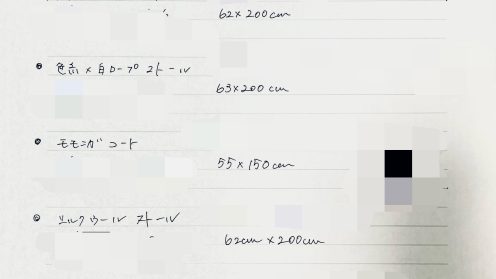 62×200cm
色点×白ロープストール
63×200cm
モモンガコート
55×150cm
シルクウールストール
62cm×200cm